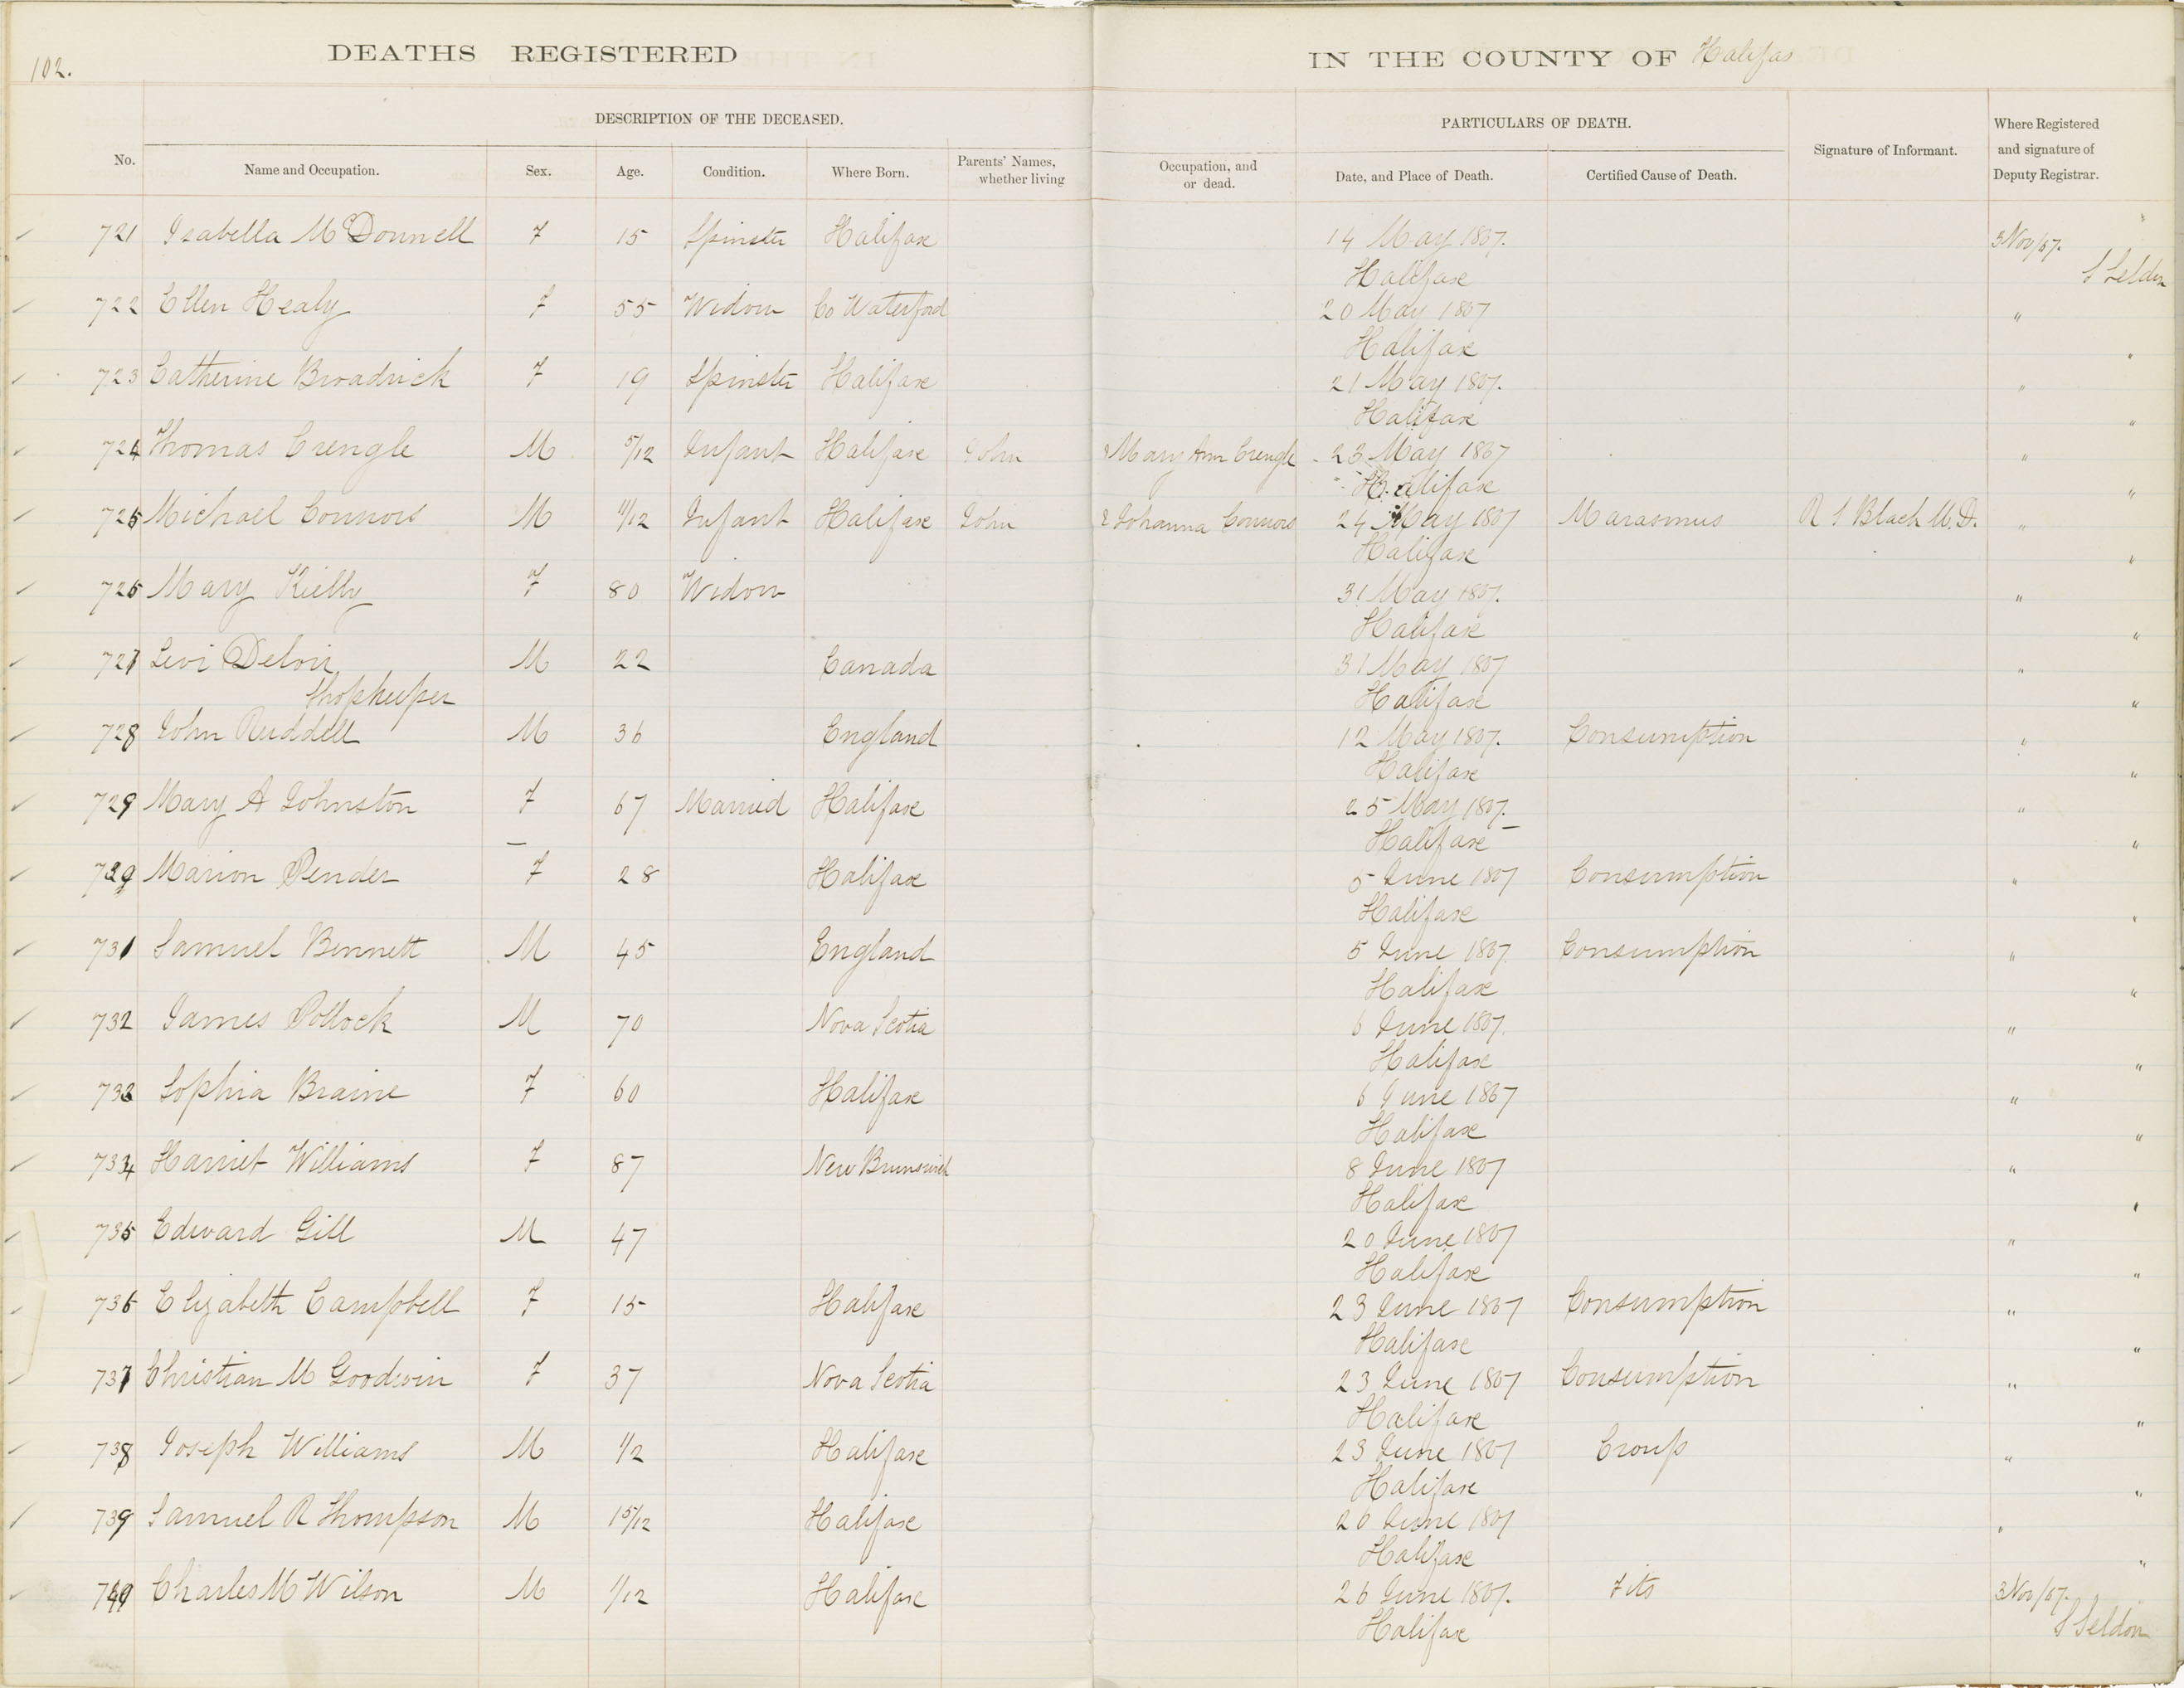 102.
DEATHS REGISTERED IN THE COUNTY OF Halifax
DESCRIPTION OF THE DECEASED. PARTICULARS OF DEATH.
No. Name and Occupation. Sex. Age. Condition. Where Born. Parents' Names, whether living Occupation, and or dead. Date, and Place of Death. Certified Cause of Death. Signature of Informant. Where Registered and signature of Deputy Registrar.
721 Isabella McDonnell F 15 Spinster Halifax 14 May 1867. 3 Nov/67.
Halifax S Selden
722 Ellen Healy F 55 Widow Co Waterford 20 May 1867 "
Halifax "
723 Catherine Broadrick F 19 Spinster Halifax 21 May 1867. "
Halifax "
724 Thomas Crengle M 5/12 Infant Halifax John & Mary Ann Crengle 23 May 1867 "
Halifax "
725 Michael Connors M 11/12 Infant Halifax John & Johanna Connors 24 May 1867 Marasmus R S Black M.D. "
Halifax "
726 Mary Kielly F 80 Widow 31 May 1867. "
Halifax "
727 Levi Deloir M 22 Canada 31 May 1867 "
Shopkeeper Halifax "
728 John Ruddell M 36 England 12 May 1867. Consumption "
Halifax "
729 Mary A Johnston F 67 Married Halifax 25 May 1867. "
Halifax "
Marion Pender F 28 Halifax 5 June 1867 Consumption "
Halifax "
731 Samuel Bennett M 45 England 5 June 1867 Consumption "
Halifax "
732 James Pollock M 70 Nova Scotia 6 June 1867. "
Halifax "
733 Sophia Braine F 60 Halifax 6 June 1867 "
Halifax "
734 Harriet Williams F 87 New Brunswick 8 June 1867 "
Halifax "
735 Edward Gill M 47 20 June 1867 "
Halifax "
736 Elizabeth Campbell F 15 Halifax 23 June 1867 Consumption "
Halifax "
737 Christian M Goodwin F 37 Nova Scotia 23 June 1867 Consumption "
Halifax "
738 Joseph Williams M 1/2 Halifax 23 June 1867 Croup "
Halifax "
739 Samuel R Thompson M 15/12 Halifax 26 June 1867 "
Halifax "
Charles M Wilson M 1/12 Halifax 26 June 1867. Fits 3 Nov/67.
Halifax S Selden